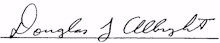 Douglas J Albright